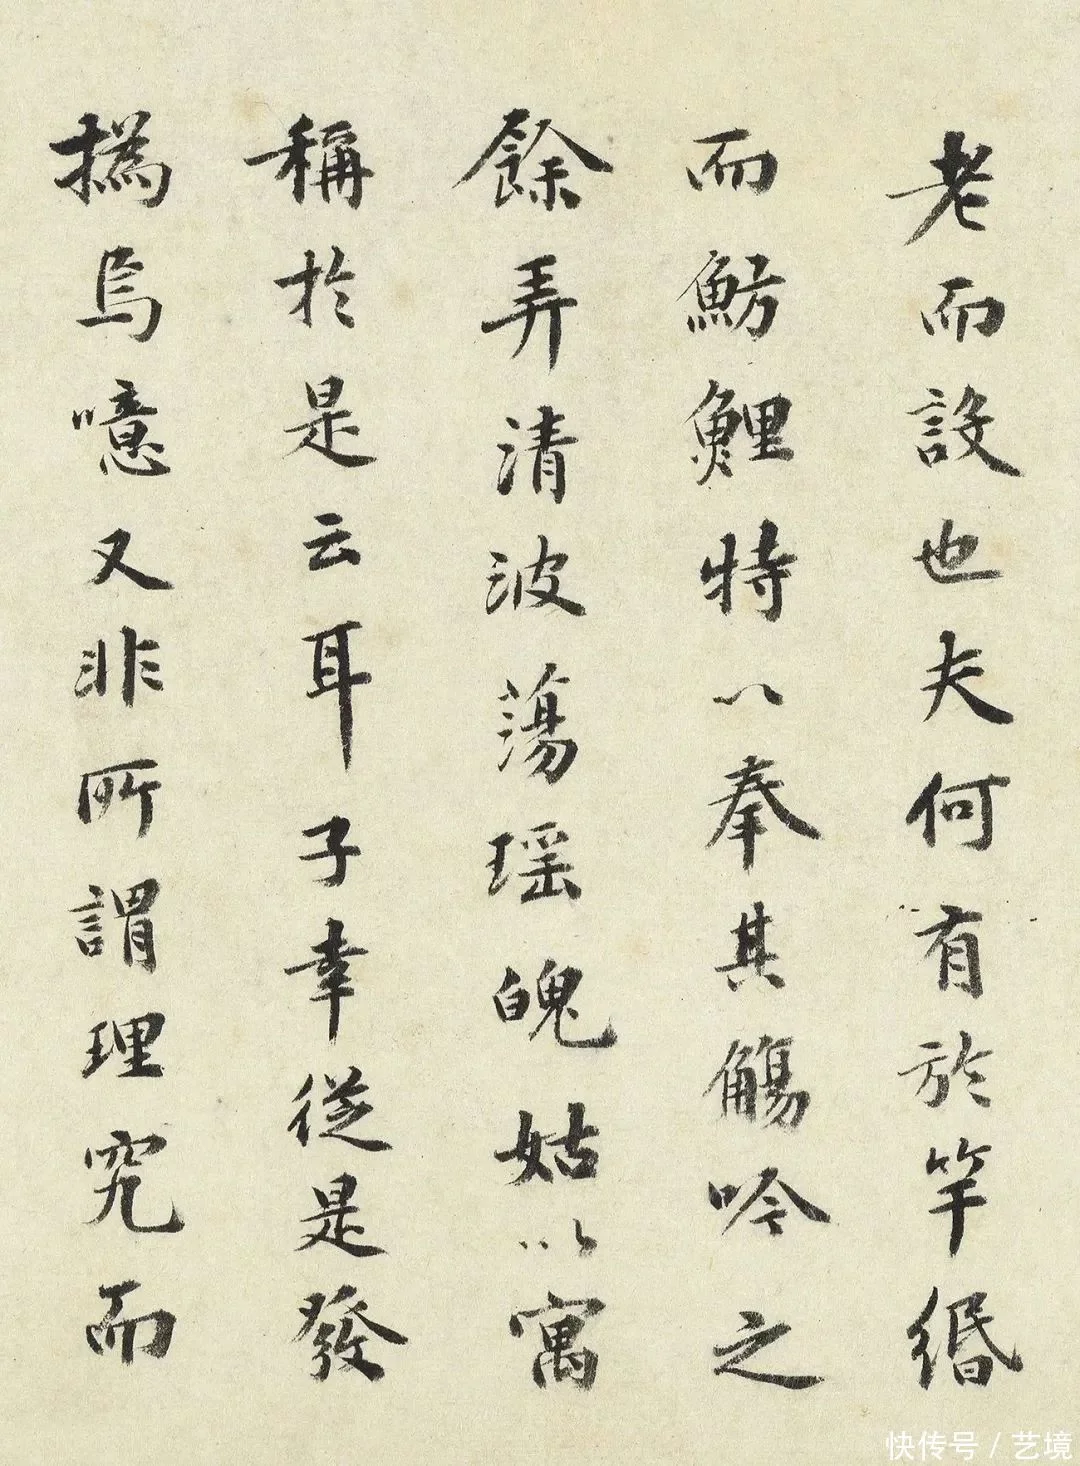 老而設也夫何有於竿緡
而魴鯉特以奉其觴吟之
餘弄清波蕩瑶魄姑以寓
稱於是云耳子幸從是發
撝焉噫又非所謂理究而
快传号/艺境